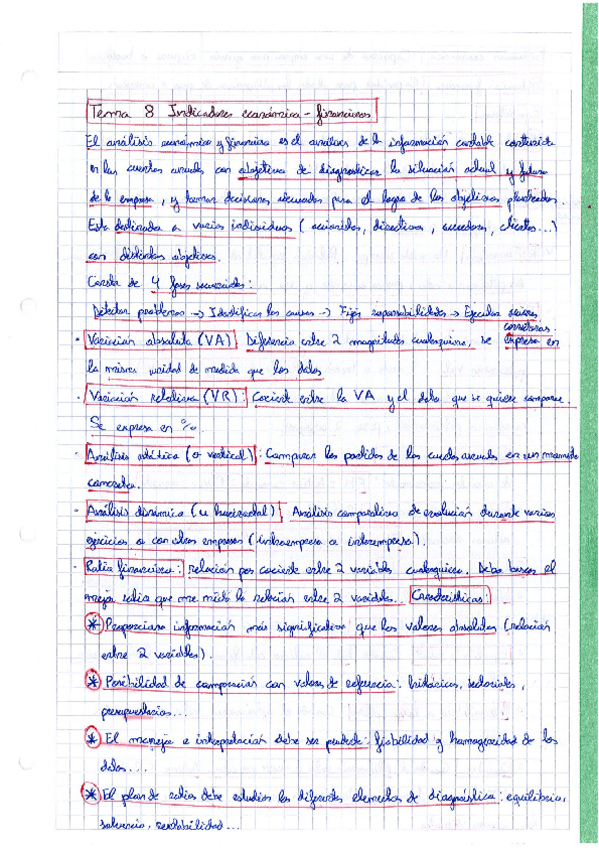 Tema 8 Indicadores económico - financieros
El análisis económico y financiero es el análisis de la información contable contenida
en las cuentas anuales con objetivo de diagnosticar la situación actual y futura
de la empresa, y tomar decisiones adecuadas para el logro de los objetivos planteados.
Esta destinada a varios individuos (accionistas, directivos, acreedores, clientes...)
con distintos objetivos.
Consta de 4 fases secuenciales:
Detectar problemas → Identificar las causas → Fijar responsabilidades → Ejecutar acciones
correctoras
· Variación absoluta (VA) Diferencia entre 2 magnitudes cualesquiera, se expresa en
la misma unidad de medida que los datos
· Variación relativa (VR): Cociente entre la VA y el dato que se quiere comparar.
Se expresa en %.
· Análisis estático (o vertical): Comparar las partidas de las cuentas anuales en un momento
concreto.
· Análisis dinámico (u horizontal) Análisis comparativo de evolución durante varios
ejercicios o con otras empresas (intraempresa o interempresa).
· Ratio financiero: relación por cociente entre 2 variables cualesquiera. Debo buscar el
mejor ratio que me mida la relación entre 2 variables. Características:
* Proporciona información más significativa que los valores absolutos (relación
entre 2 variables).
* Posibilidad de comparación con valores de referencia: históricos, sectoriales,
presupuestarios...
* El manejo e interpretación debe ser prudente: fiabilidad y homogeneidad de los
datos...
* El plan de ratios debe estudiar los diferentes elementos de diagnóstico: equilibrio,
solvencia, rentabilidad...